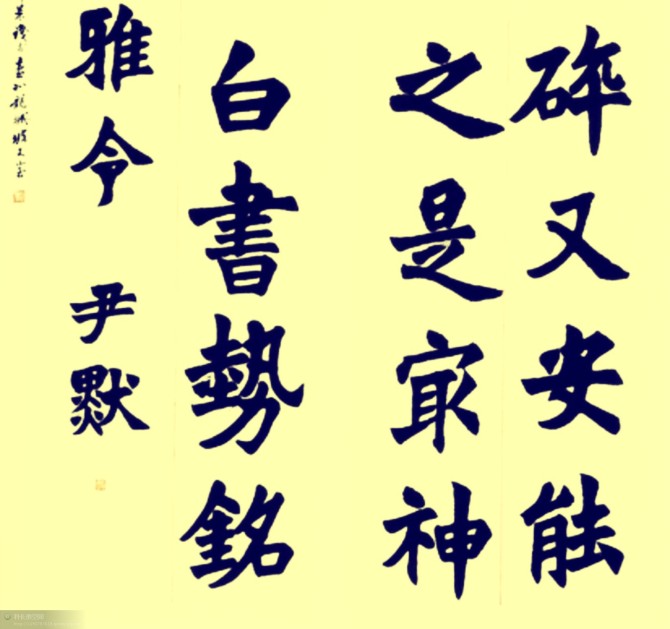 砕又安能
之是㝡神
白書勢銘
雅令 尹默